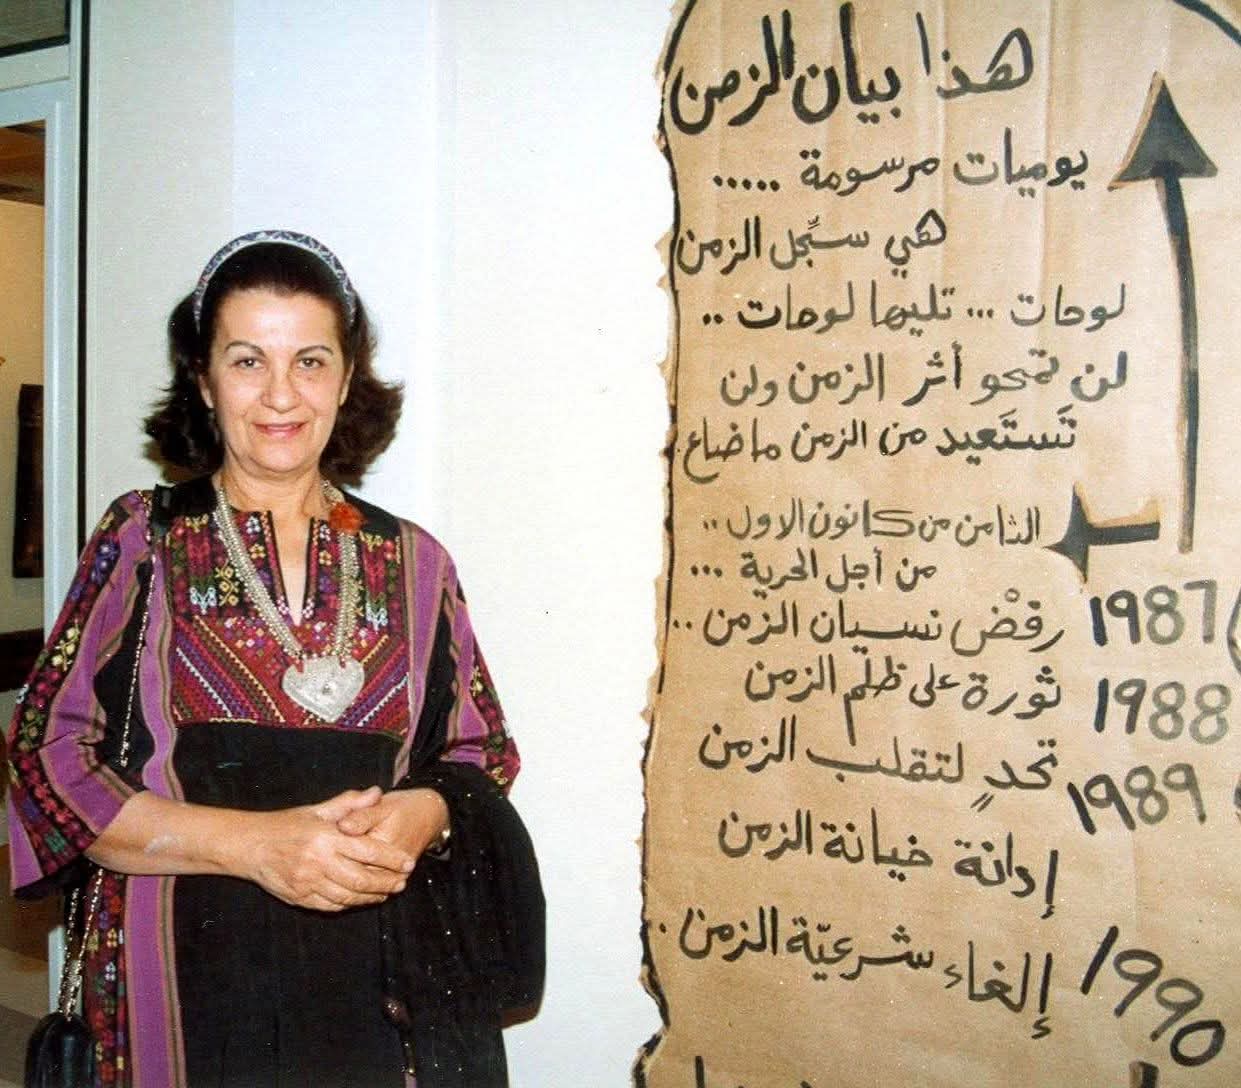 هذا بيان الزمن
يوميات مرسومة .....
هي سجّل الزمن
لوحات ... تليها لوحات ..
لن تمحو أثر الزمن ولن
تَستَعيد من الزمن ما ضاع
الثامن من كانون الاول ..
من أجل الحرية ...
1987 رفْض نسيان الزمن ..
1988 ثورة على ظلم الزمن
1989 تحدٍ لتقلب الزمن
إدانة خيانة الزمن
1990 إلغاء شرعيّة الزمن .